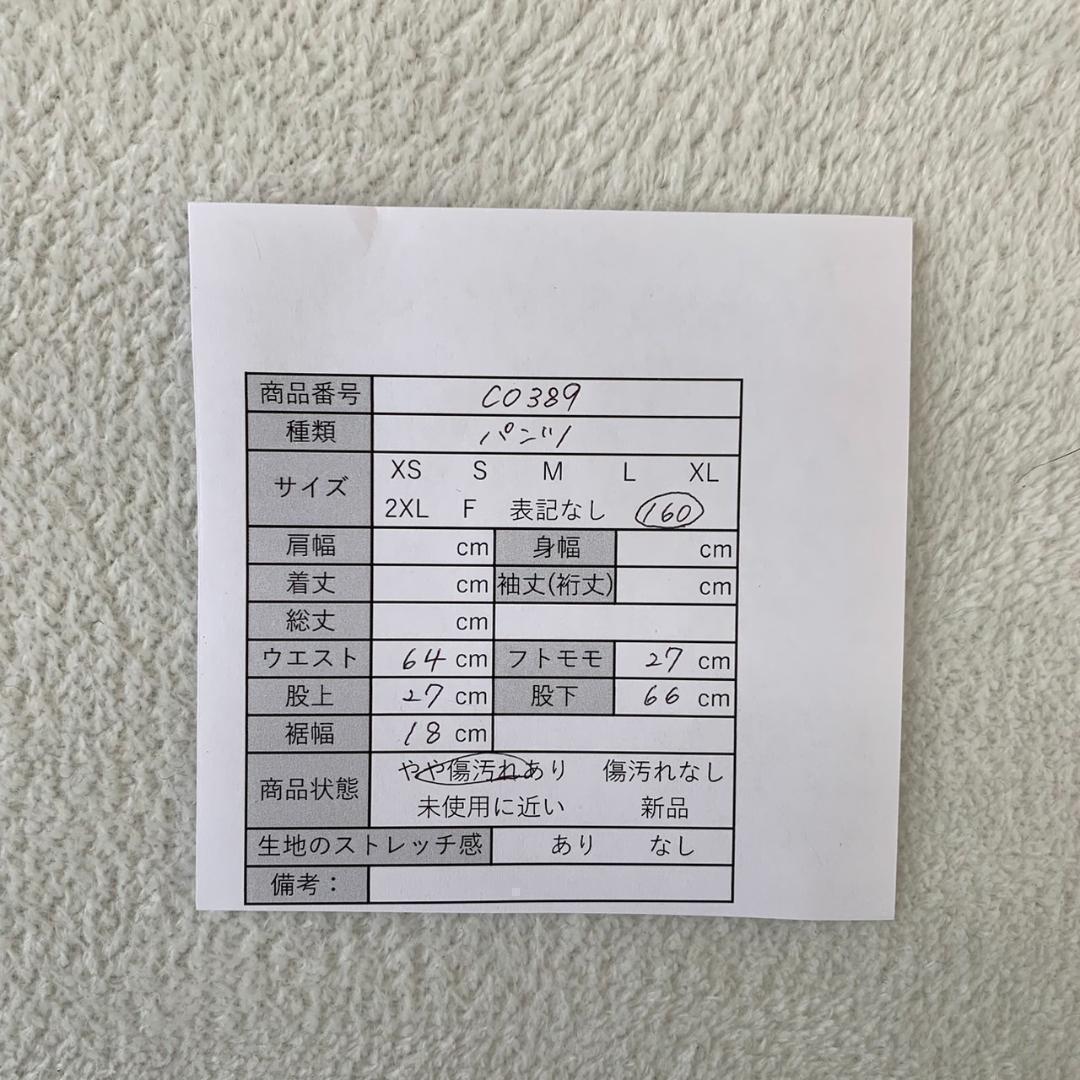 商品番号 CO389
種類 パンツ
サイズ XS S M L XL
2XL F 表記なし 160
肩幅 cm 身幅 cm
着丈 cm 袖丈(裄丈) cm
総丈 cm
ウエスト 64 cm フトモモ 27 cm
股上 27 cm 股下 66 cm
裾幅 18 cm
商品状態 やや傷汚れあり 傷汚れなし
未使用に近い 新品
生地のストレッチ感 あり なし
備考：